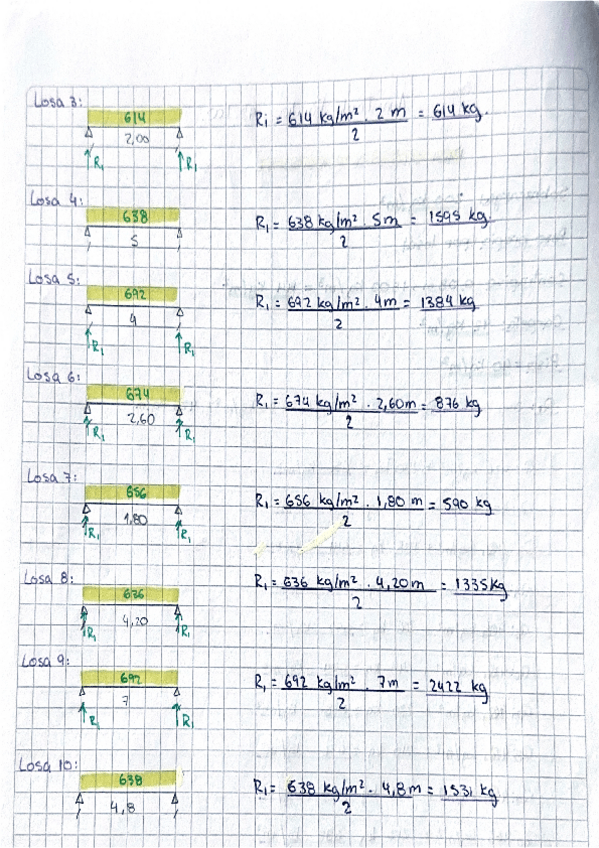 Losa 3:
614
2,00
R₁ R₁
R₁ = 614 kg/m² . 2 m = 614 kg.
2
Losa 4:
638
5
R₁ = 638 kg/m² . 5m = 1595 kg
2
Losa 5:
692
4
R₁ R₁
R₁ = 692 kg/m² . 4m = 1384 kg
2
Losa 6:
674
2,60
R₁ R₁
R₁ = 674 kg/m² . 2,60m = 876 kg
2
Losa 7:
656
1,80
R₁ R₁
R₁ = 656 kg/m² . 1,80 m = 590 kg
2
Losa 8:
636
4,20
R₁ R₁
R₁ = 636 kg/m² . 4,20m = 1335kg
2
Losa 9:
692
7
R₁ R₁
R₁ = 692 kg/m² . 7m = 2422 kg
2
Losa 10:
638
4,8
R₁ = 638 kg/m² . 4,8m = 1531 kg
2